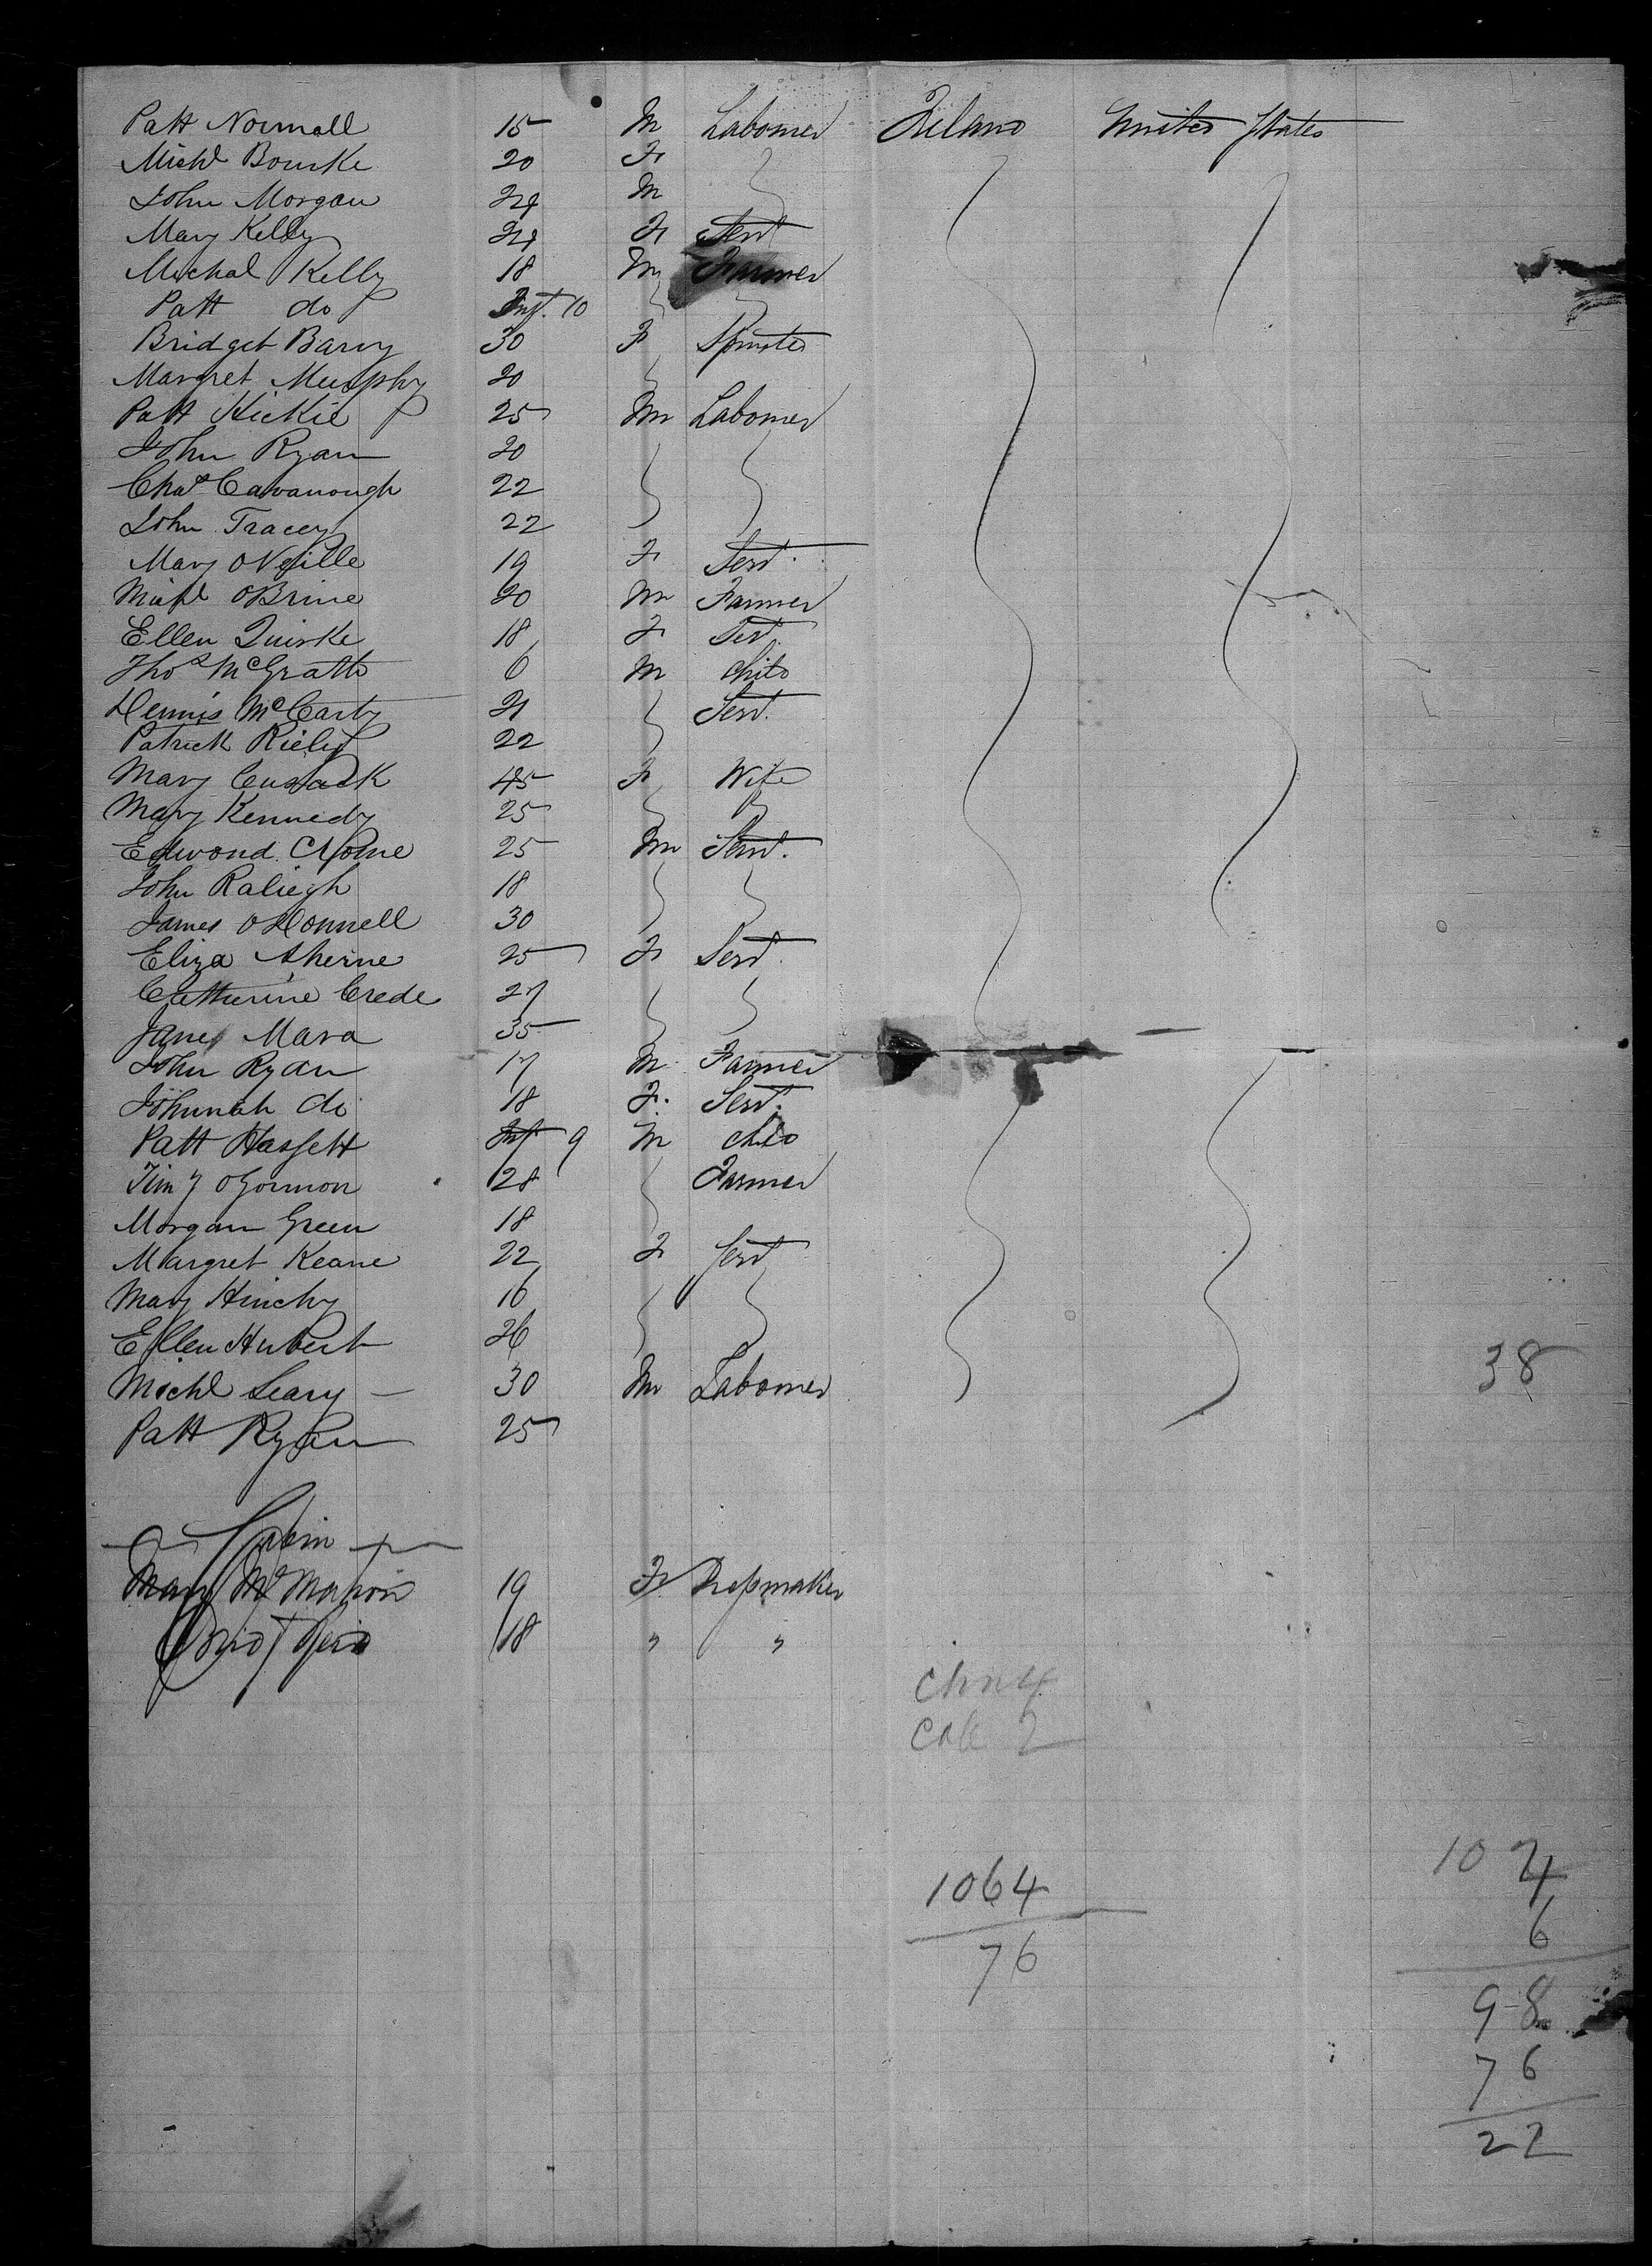 Patt Normall 15 M Labourer Ireland United States
Michl Bourke 20 F
John Morgan 24 M
Mary Kelly 24 F Servt
Michal Kelly 18 M Farmer
Patt do Inft. 10
Bridget Barry 30 F Spinster
Margret Murphy 20
Patt Hickie 25 M Labourer
John Ryan 20
Chas Cavanough 22
John Tracey 22
Mary ONeille 19 F Servt.
Michl OBrine 20 M Farmer
Ellen Quirke 18 F Servt.
Thos McGrath 6 M Child
Dennis McCarty 21 Servt.
Patrick Riely 22
Mary Cusack 45 F Wife
Mary Kennedy 25
Edmond 25 M Servt.
John Raliegh 18
James ODonnell 30
Eliza Aherne 25 F Servt.
Catherine Crede 27
Jane Mara 35
John Ryan 17 M Farmer
Johnnah do 18 F. Servt.
Patt Hassett Inft 9 M Child
Timy OGorman 28 Farmer
Morgan Green 18
Margret Keane 22 F Servt
Mary Hinchy 16
Ellen Hubert 26
Michl Leary — 30 M Labourer 38
Patt Ryan 25
Cabin
Mary McMahon 19 F Dressmaker
18 " "
Chn 4
Cab 2
1064
76
102
4
6
98
76
22